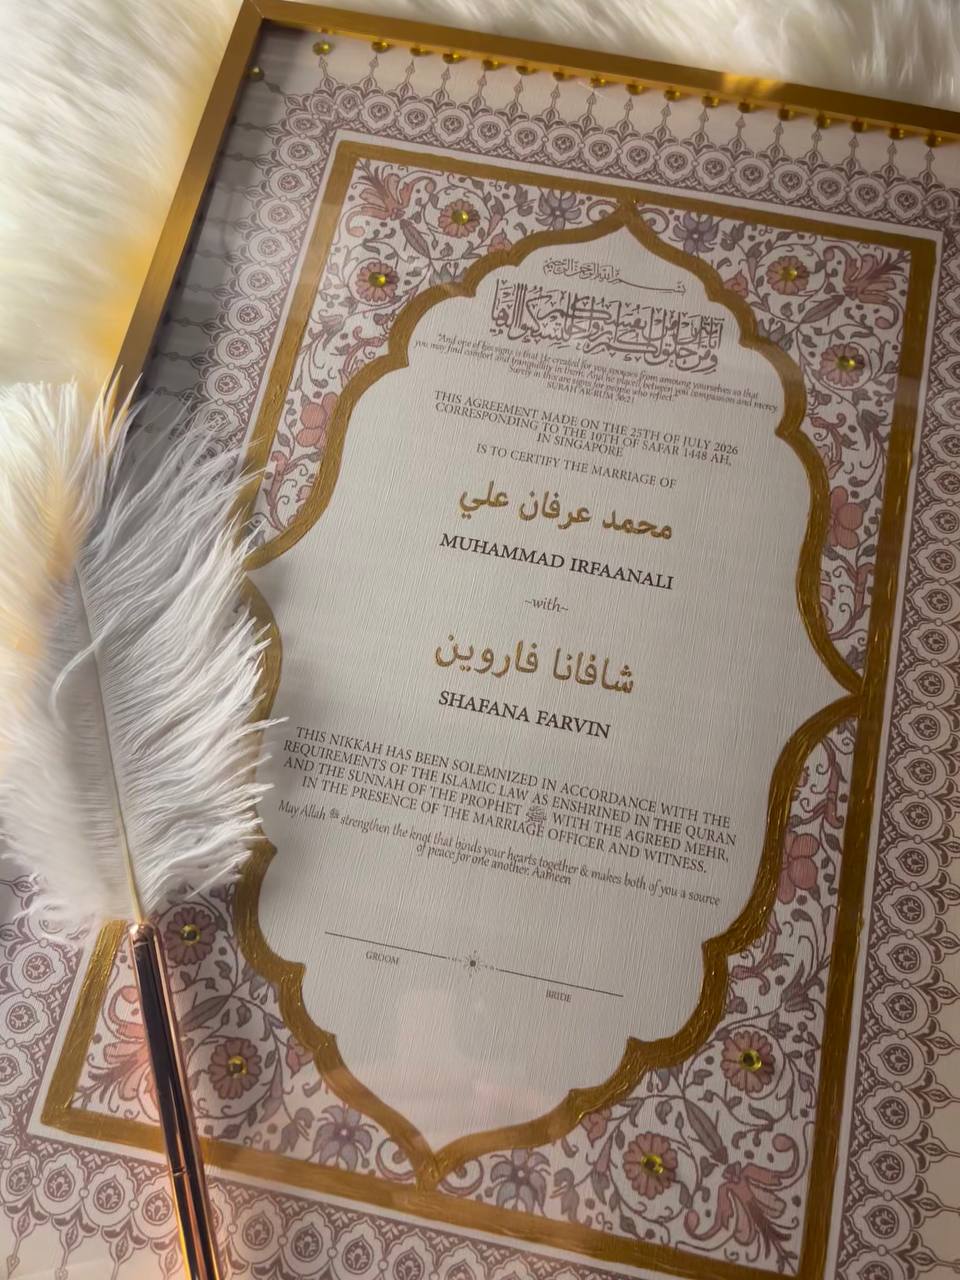 بسم الله الرحمن الرحيم
"And one of his signs is that He created for you spouses from among yourselves so that
you may find comfort and tranquillity in them. And he placed between you compassion and mercy.
Surely in this are signs for people who reflect."
SURAH AR-RUM 30:21
THIS AGREEMENT MADE ON THE 25TH OF JULY 2026
CORRESPONDING TO THE 10TH OF SAFAR 1448 AH,
IN SINGAPORE
IS TO CERTIFY THE MARRIAGE OF
محمد عرفان علي
MUHAMMAD IRFAANALI
~with~
شافانا فاروين
SHAFANA FARVIN
THIS NIKKAH HAS BEEN SOLEMNIZED IN ACCORDANCE WITH THE
REQUIREMENTS OF THE ISLAMIC LAW AS ENSHRINED IN THE QURAN
AND THE SUNNAH OF THE PROPHET ﷺ WITH THE AGREED MEHR,
IN THE PRESENCE OF THE MARRIAGE OFFICER AND WITNESS.
May Allah strengthen the knot that binds your hearts together & makes both of you a source
of peace for one another. Aameen
GROOM
BRIDE